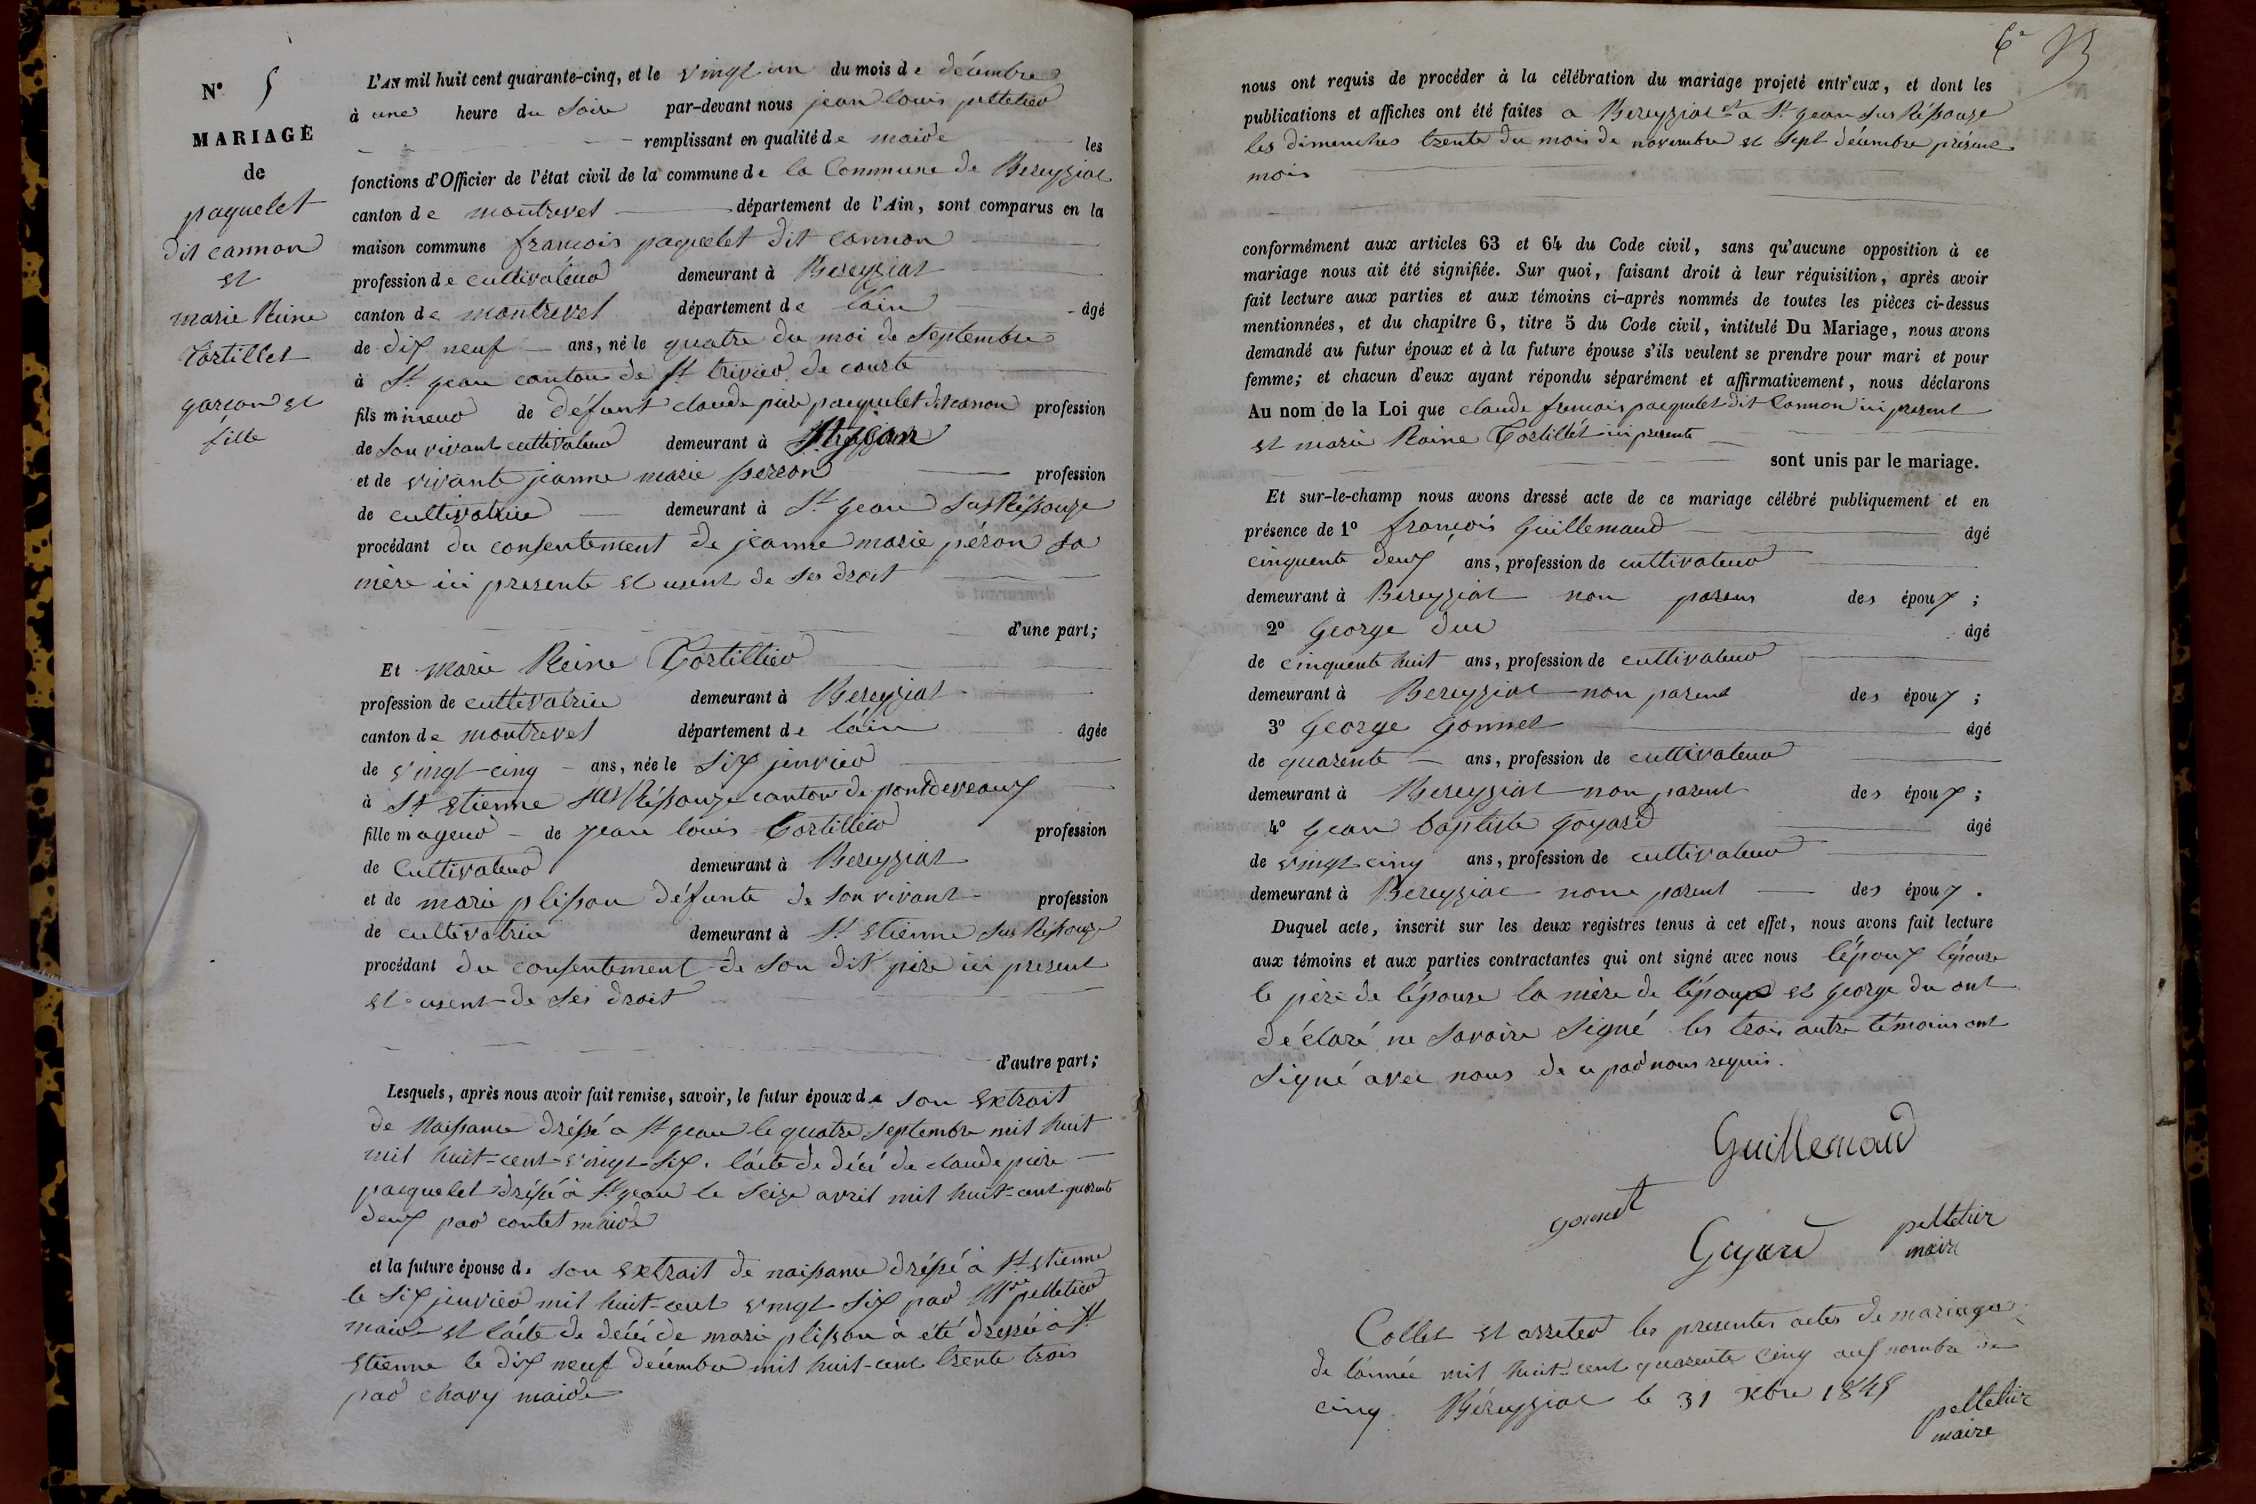 N° 5
MARIAGE
de
paquelet
dit cannon
et
marie Reine
Tortillet
garcon et
fille
L'AN mil huit cent quarante-cinq, et le vingt un du mois de décembre
à une heure du Soire par-devant nous jean louis pelletier
remplissant en qualité de maire les
fonctions d'Officier de l'état civil de la commune de la Commune de Bereyziat
canton de montrevel département de l'Ain, sont comparus en la
maison commune francois paquelet dit Cannon
profession de cultivateur demeurant à Bereyziat
canton de montrevel département de l'ain âgé
de dix neuf ans, né le quatre du moi de Septembre
à St jean canton de St trivier de courte
fils mineur de défunt claude pière paequelet dit canon profession
de Son vivant cultivateur demeurant à St jean
et de vivante jeanne marie perron profession
de cultivatrice demeurant à St jean Sur Réssouze
procédant du consentement de jeanne marie péron Sa
mère ici presente et usent de Ses droit
d'une part;
Et marie Reine Tortillier
profession de cultivatrice demeurant à Bereyziat
canton de montrevel département de l'ain âgée
de vingt-cinq ans, née le Six jenvier
à St Etienne Sur Réssouze canton de pont de veaux
fille mageur de jean louis Tortillier profession
de Cultivateur demeurant à Bereyziat
et de marie plisson défunte de Son vivant profession
de cultivatrice demeurant à St Etienne Sur Réssouze
procédant du consentement de Son dit père ici present
et usent de Ses droit
d'autre part;
Lesquels, après nous avoir fait remise, savoir, le futur époux de Son Extrait
de Naissance dréssé à St jean le quatre Septembre mil huit
mil huit-cent-vingt-Six. l'acte de décé de claude pière
paequelet dréssé à St jean le Seize avril mil huit-cent quarente
deux par contet maire
et la future épouse de Son Extrait de naissance dréssé à St Etienne
le Six jenvier mil huit-cent vingt Six par Mr pelletier
maire et l'acte de décé de marie plisson à été dressé à St
Etienne le dix neuf décembre mil huit-cent trente trois
par chavy maire
6e
nous ont requis de procéder à la célébration du mariage projeté entr'eux, et dont les
publications et affiches ont été faites a Bereyziat et a St jean Sur Réssouze
les dimenches trente du mois de novembre et Sept décembre présent
mois
conformément aux articles 63 et 64 du Code civil, sans qu'aucune opposition à ce
mariage nous ait été signifiée. Sur quoi, faisant droit à leur réquisition, après avoir
fait lecture aux parties et aux témoins ci-après nommés de toutes les pièces ci-dessus
mentionnées, et du chapitre 6, titre 5 du Code civil, intitulé Du Mariage, nous avons
demandé au futur époux et à la future épouse s'ils veulent se prendre pour mari et pour
femme; et chacun d'eux ayant répondu séparément et affirmativement, nous déclarons
Au nom de la Loi que claude francois paequelet dit Cannon ici present
et marie Raine Tortillét ici presente
sont unis par le mariage.
Et sur-le-champ nous avons dressé acte de ce mariage célébré publiquement et en
présence de 1° françois Guillemaud âgé
cinquente deux ans, profession de cultivateur
demeurant à Bereyziat non parens des époux ;
2° George duc âgé
de cinquente huit ans, profession de cultivateur
demeurant à Bereyziat non parent des époux ;
3° George Gonnet âgé
de quarente ans, profession de cultivateur
demeurant à Bereyziat non parent des époux ;
4° jean baptiste Goyard âgé
de vingt cinq ans, profession de cultivateur
demeurant à Bereyziat none parent des époux .
Duquel acte, inscrit sur les deux registres tenus à cet effet, nous avons fait lecture
aux témoins et aux parties contractantes qui ont signé avec nous l'époux l'épouse
le père de l'épouse la mère de l'époux et George du ont
déclaré ne Savoire Signé les trois autre témoins ont
Signé avec nous de ce par nous requis.
Guillemaud
gonnet
Goyard
pelletier
maire
Collet et arreter les presentes actes de mariages
de l'année mil huit-cent quarente cinq aux nombre de
cinq. Béreyziat le 31 Xbre 1845
pelletier
maire